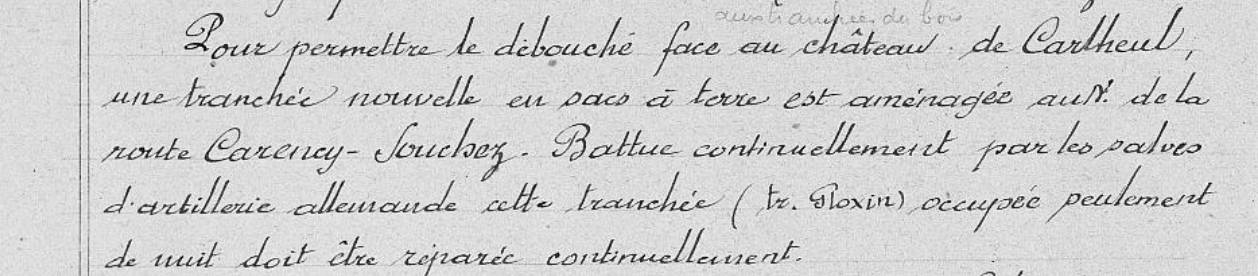 aux tranchées du bois
Pour permettre le débouché face au château de Carlheul,
une tranchée nouvelle en sacs à terre est aménagée au N. de la
route Carency - Souchez. Battue continuellement par les salves
d'artillerie allemande cette tranchée (tr. Ploxin) occupée seulement
de nuit doit être réparée continuellement.